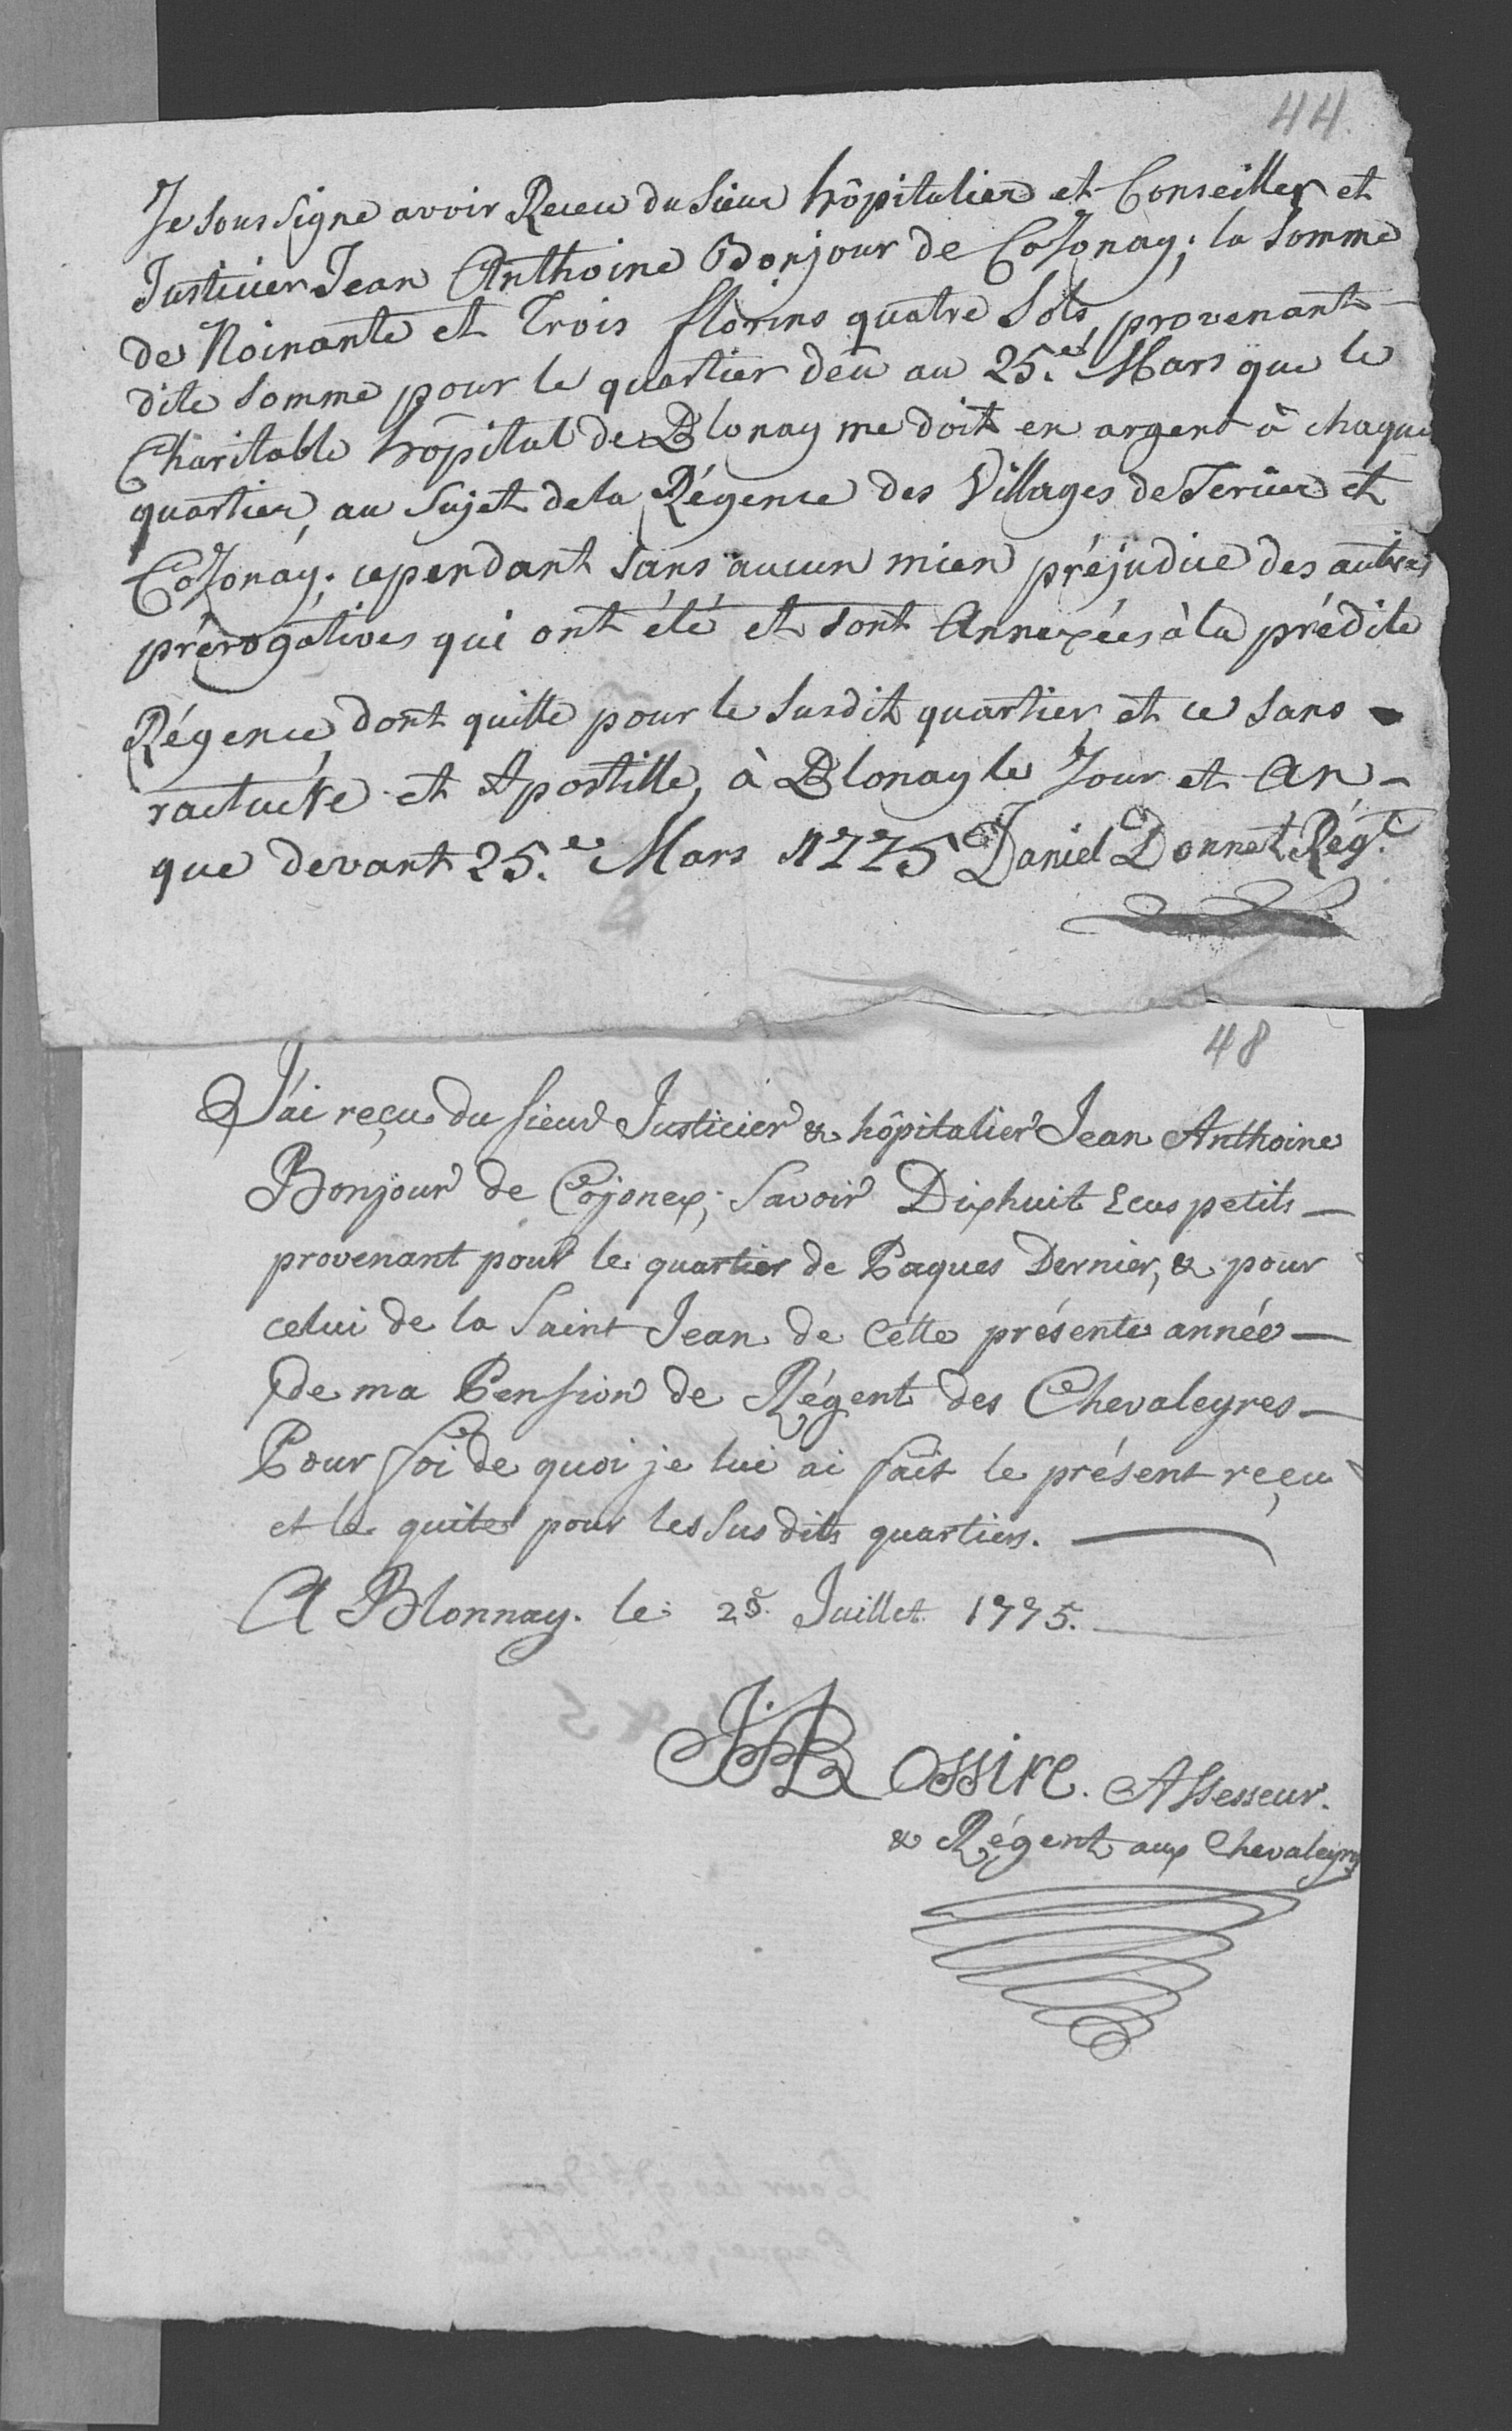 44.
Je sous signe avoir Receu du sieur hôpitalier et Conseiller et
Justicier Jean Anthoine Bonjour de Cojonay; la somme
de Noinante et Trois florins quatre sols, provenant
dite somme pour le quartier deû au 25.e Mars que le
Charitable hôpital de Blonay me doit en argent à chaque
quartier, au sujet de la Régence des Villages de Tercier et
Cojonay; cependant sans aucun mien préjudice des autres
prérogatives qui ont été et sont Annexées à la prédite
Régence, dont quitte pour le susdit quartier, et ce sans
et Apostille, à Blonay le Jour et An
que devant 25.e Mars 1775 Daniel Donnet Régt
48
J'ai reçu du sieur Justicier & hôpitalier Jean Anthoine
Bonjour de Cojonex; Savoir Dixhuit Ecus petits
provenant pour le quartier de Paques Dernier, & pour
celui de la Saint Jean de Cette présente année
de ma Pension de Régent des Chevaleyres
Pour foi de quoi je lui ai fait le présent reçu
et le quite pour les sus dits quartiers.
A Blonnay. le 25. Juillet 1775.
Assesseur.
& Régent aux Chevaleyres